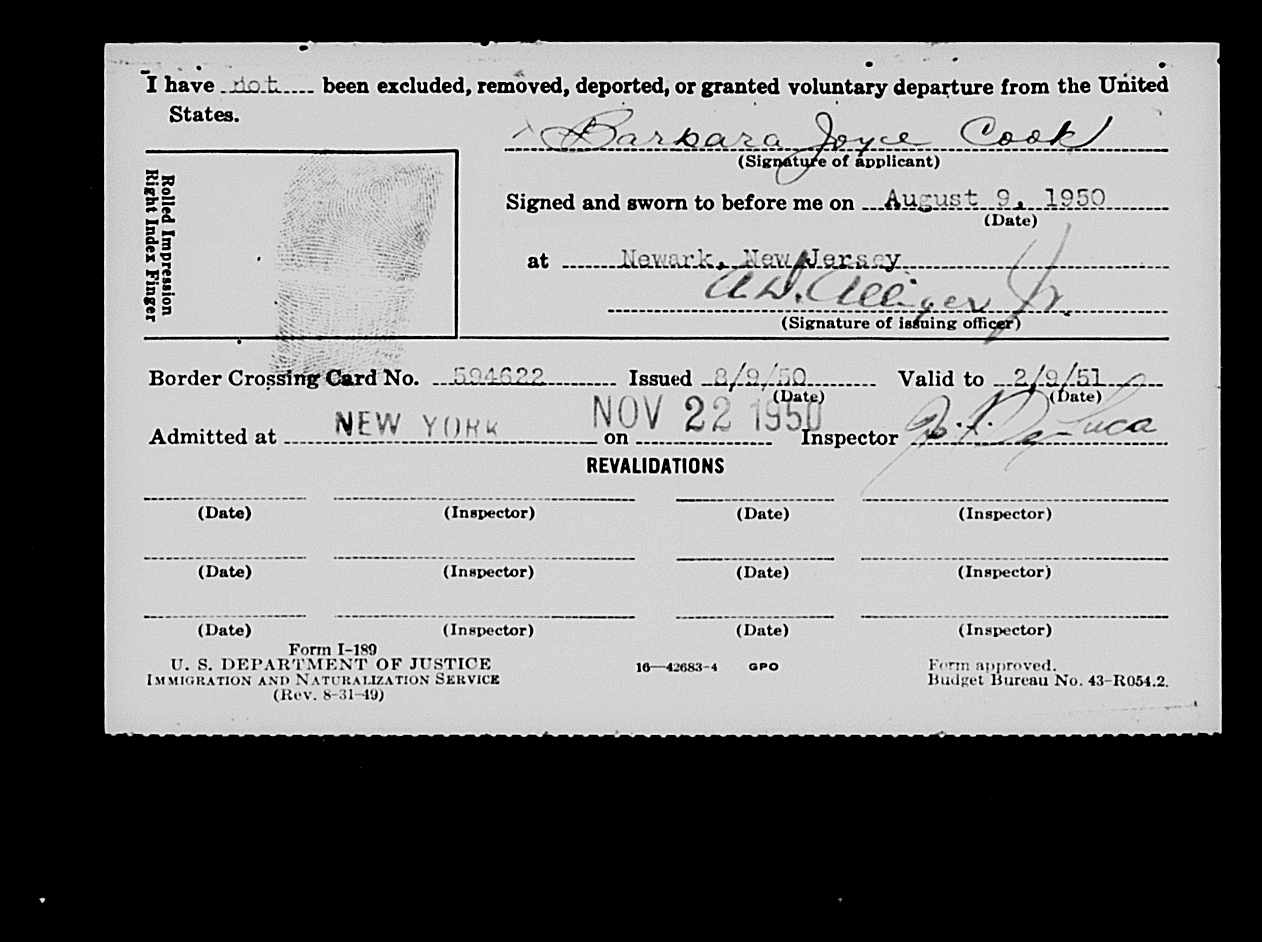 I have not been excluded, removed, deported, or granted voluntary departure from the United
States.
Barbara Joyce Cook
(Signature of applicant)
Rolled Impression
Right Index Finger
Signed and sworn to before me on August 9, 1950
(Date)
at Newark, New Jersey
A.D. Alliger Jr.
(Signature of issuing officer)
Border Crossing Card No. 594622 Issued 8/9/50 Valid to 2/9/51
(Date) (Date)
Admitted at NEW YORK on NOV 22 1950 Inspector De Luca
REVALIDATIONS
(Date) (Inspector) (Date) (Inspector)
(Date) (Inspector) (Date) (Inspector)
(Date) (Inspector) (Date) (Inspector)
Form I-189
U. S. DEPARTMENT OF JUSTICE
IMMIGRATION AND NATURALIZATION SERVICE
(Rev. 8-31-49)
16—42683-4 GPO
Form approved.
Budget Bureau No. 43-R054.2.